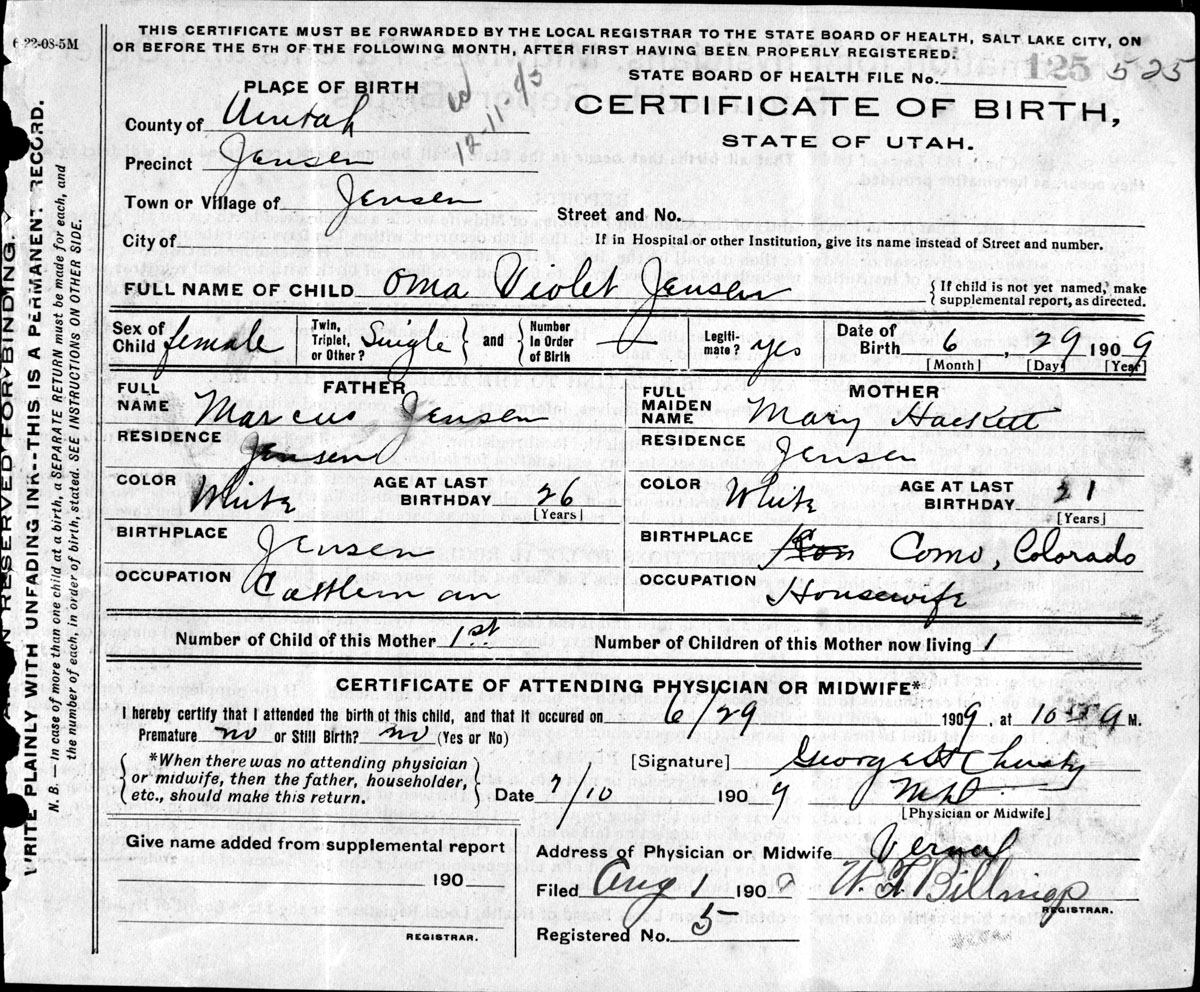 6 22-08-5M
THIS CERTIFICATE MUST BE FORWARDED BY THE LOCAL REGISTRAR TO THE STATE BOARD OF HEALTH, SALT LAKE CITY, ON
OR BEFORE THE 5TH OF THE FOLLOWING MONTH, AFTER FIRST HAVING BEEN PROPERLY REGISTERED.
STATE BOARD OF HEALTH FILE No. 125 525
PLACE OF BIRTH
12-11-43
CERTIFICATE OF BIRTH,
STATE OF UTAH.
County of Uintah
Precinct Jensen
Town or Village of Jensen
Street and No.
City of
If in Hospital or other Institution, give its name instead of Street and number.
FULL NAME OF CHILD Oma Violet Jensen { If child is not yet named, make supplemental report, as directed.
Sex of Child female Twin, Triplet, or Other? Single } and { Number in Order of Birth — Legiti-mate? yes Date of Birth 6, 29 1909
[Month] [Day] [Year]
FATHER
FULL NAME Marcus Jensen
RESIDENCE Jensen
COLOR White AGE AT LAST BIRTHDAY 26
[Years]
BIRTHPLACE Jensen
OCCUPATION Cattleman
MOTHER
FULL MAIDEN NAME Mary Hackett
RESIDENCE Jensen
COLOR White AGE AT LAST BIRTHDAY 21
[Years]
BIRTHPLACE Como, Colorado
OCCUPATION Housewife
Number of Child of this Mother 1st Number of Children of this Mother now living 1
CERTIFICATE OF ATTENDING PHYSICIAN OR MIDWIFE*
I hereby certify that I attended the birth of this child, and that it occured on 6/29 1909, at 10 A M.
Premature no or Still Birth? no (Yes or No)
{ *When there was no attending physician
or midwife, then the father, householder,
etc., should make this return. }
[Signature] George H Christy
Date 7/10 1909 MD
[Physician or Midwife]
Give name added from supplemental report
190
REGISTRAR.
Address of Physician or Midwife Vernal
Filed Aug 1 1909 W. F. Billings
REGISTRAR.
Registered No. 5
MARGIN RESERVED FOR BINDING.
WRITE PLAINLY WITH UNFADING INK--THIS IS A PERMANENT RECORD.
N. B.—In case of more than one child at a birth, a SEPARATE RETURN must be made for each, and
the number of each, in order of birth, stated. SEE INSTRUCTIONS ON OTHER SIDE.